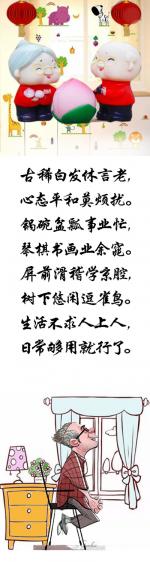 古稀白发休言老，
心态平和莫烦扰。
锅碗盆瓢事业忙，
琴棋书画业余宠。
屏前滑稽学京腔，
树下悠闲逗雀鸟。
生活不求人上人，
日常够用就行了。